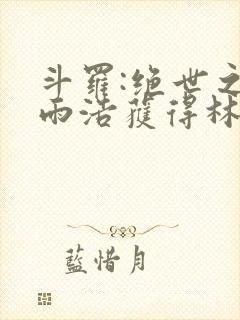 斗羅:绝世之
雨浩獲得林
藍惜月